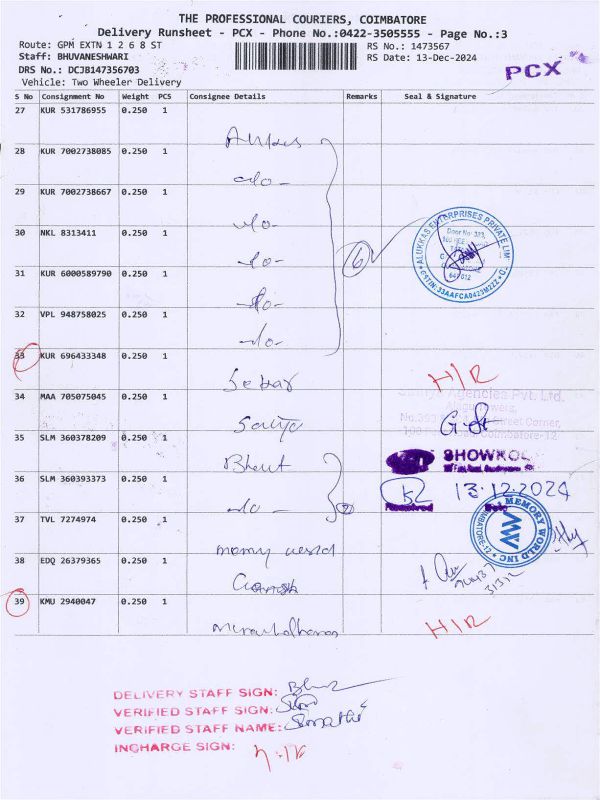 THE PROFESSIONAL COURIERS, COIMBATORE
Delivery Runsheet - PCX - Phone No.:0422-3505555 - Page No.:3
Route: GPM EXTN 1 2 6 8 ST
RS No.: 1473567
Staff: BHUVANESHWARI
RS Date: 13-Dec-2024
DRS No.: DCJB147356703
PCX
Vehicle: Two Wheeler Delivery
S No Consignment No Weight PCS Consignee Details Remarks Seal & Signature
27 KUR 531786955 0.250 1
28 KUR 7002738085 0.250 1
-do-
29 KUR 7002738667 0.250 1
-do-
30 NKL 8313411 0.250 1
-do-
31 KUR 6000589790 0.250 1
-do-
32 VPL 948758025 0.250 1
-do-
6
ALUKKAS ENTERPRISES PRIVATE LIM
Door No: 323,
GSTIN:33AAFCA0423M2ZZ
33 KUR 696433348 0.250 1
H/R
34 MAA 705075045 0.250 1
Agencies Pvt. Ltd.
Street Corner,
Coimbatore-12
35 SLM 360378209 0.250 1
Bharat
SHOWROOM
36 SLM 360393373 0.250 1
-do-
2
13.12.2024
Received
Date
37 TVL 7274974 0.250 1
memory world
MEMORY WORLD INC
38 EDQ 26379365 0.250 1
Ganesh
39 KMU 2940047 0.250 1
H/R
DELIVERY STAFF SIGN:
VERIFIED STAFF SIGN:
VERIFIED STAFF NAME: Sumathi
INCHARGE SIGN: